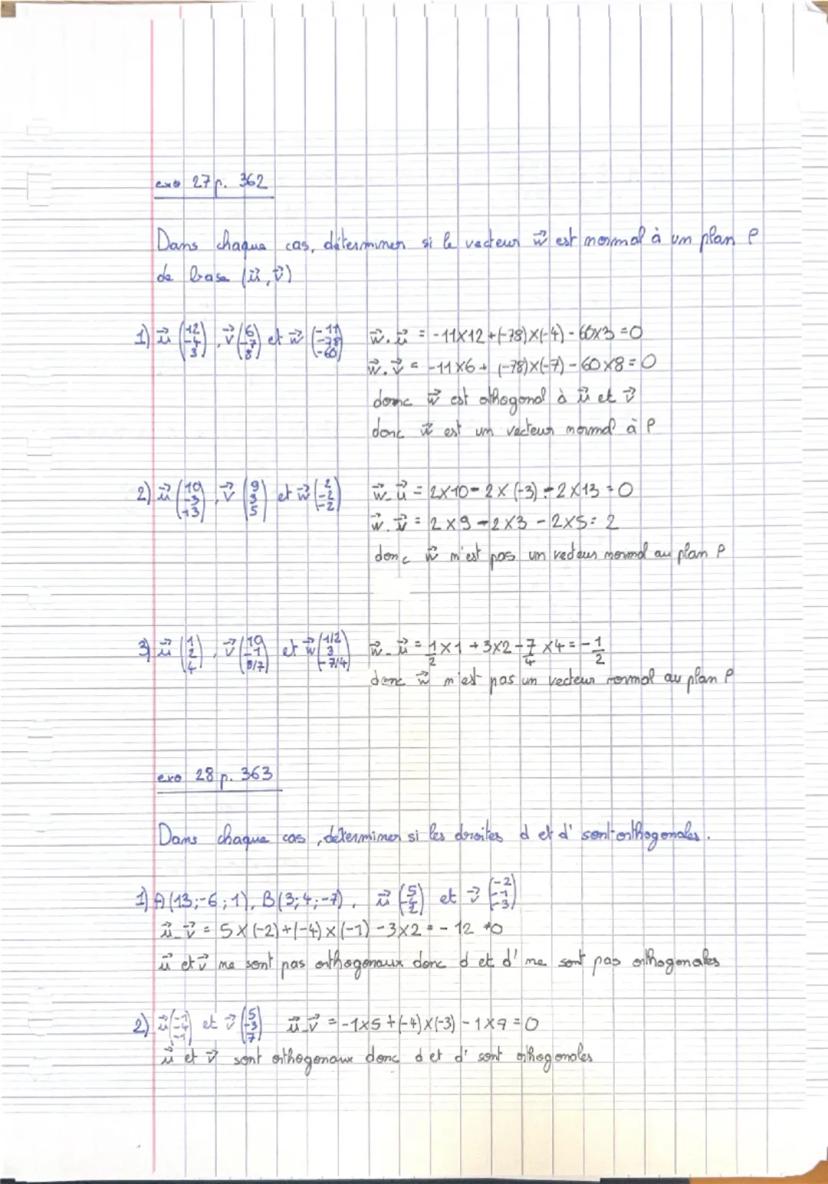 exo 27 p. 362
Dans chaque cas, déterminer si le vecteur w⃗ est normal à un plan P
de base (u⃗, v⃗)
1) u⃗ (12 -4 3), v⃗ (6 -7 8) et w⃗ (-11 -78 -60) w⃗. u⃗ = -11×12 +(-78)×(-4) - 60×3 = 0
w⃗. v⃗ = -11×6 + (-78)×(-7) - 60×8 = 0
donc w⃗ est othogonal à u⃗ et v⃗
donc w⃗ est un vecteur normal à P
2) u⃗ (10 -3 13), v⃗ (9 3 5) et w⃗ (2 -2 -2) w⃗. u⃗ = 2×10 - 2×(-3) - 2×13 = 0
w⃗. v⃗ = 2×9 - 2×3 - 2×5 = 2
donc w⃗ n'est pas un vecteur normal au plan P
3) u⃗ (1 2 4), v⃗ (10 -1 8/7) et w⃗ (1/2 3 -7/4) w⃗. u⃗ = 1/2 ×1 + 3×2 - 7/4 ×4 = - 1/2
donc w⃗ n'est pas un vecteur normal au plan P
exo 28 p. 363
Dans chaque cas, déterminer si les droites d et d' sont orthogonales.
1) A(13;-6;1), B(3;4;-7), u⃗ (5 -4 2) et v⃗ (-2 -1 -3)
u⃗. v⃗ = 5×(-2)+(-4)×(-1) - 3×2 = - 12 ≠0
u⃗ et v⃗ ne sont pas orthogonaux donc d et d' ne sont pas orthogonales
2) u⃗ (-1 -4 -1) et v⃗ (5 -3 7) u⃗. v⃗ = -1×5 +(-4)×(-3) - 1×7 = 0
u⃗ et v⃗ sont orthogonaux donc d et d' sont orthogonales